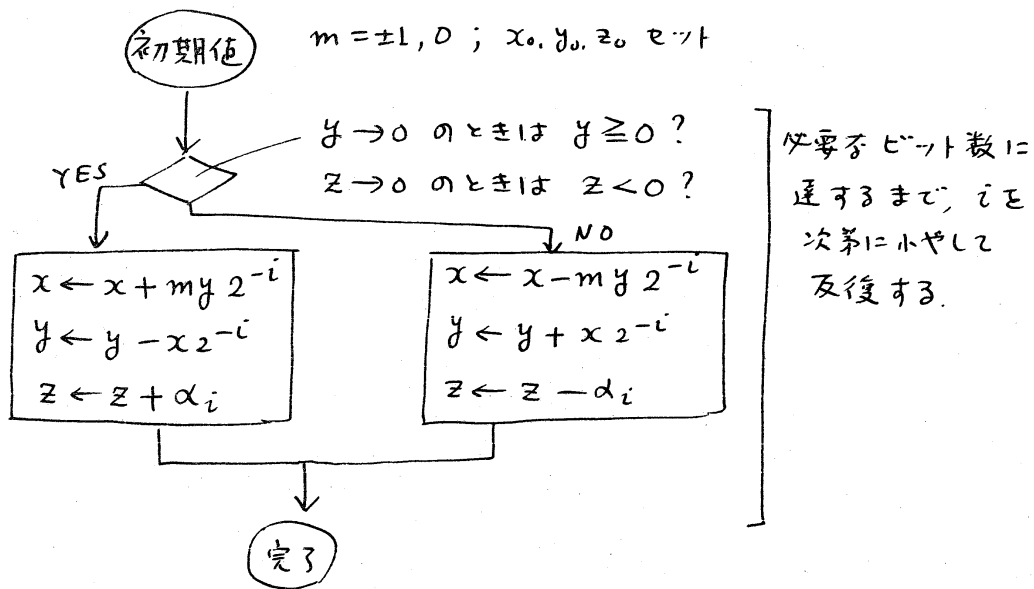 初期値
m = ±1, 0 ; x₀, y₀, z₀ セット
y → 0 のときは y ≧ 0 ?
z → 0 のときは z < 0 ?
YES
NO
x ← x + m y 2⁻ⁱ
y ← y - x 2⁻ⁱ
z ← z + αᵢ
x ← x - m y 2⁻ⁱ
y ← y + x 2⁻ⁱ
z ← z - αᵢ
必要なビット数に
達するまで, i を
次第に小やして
反復する.
完了